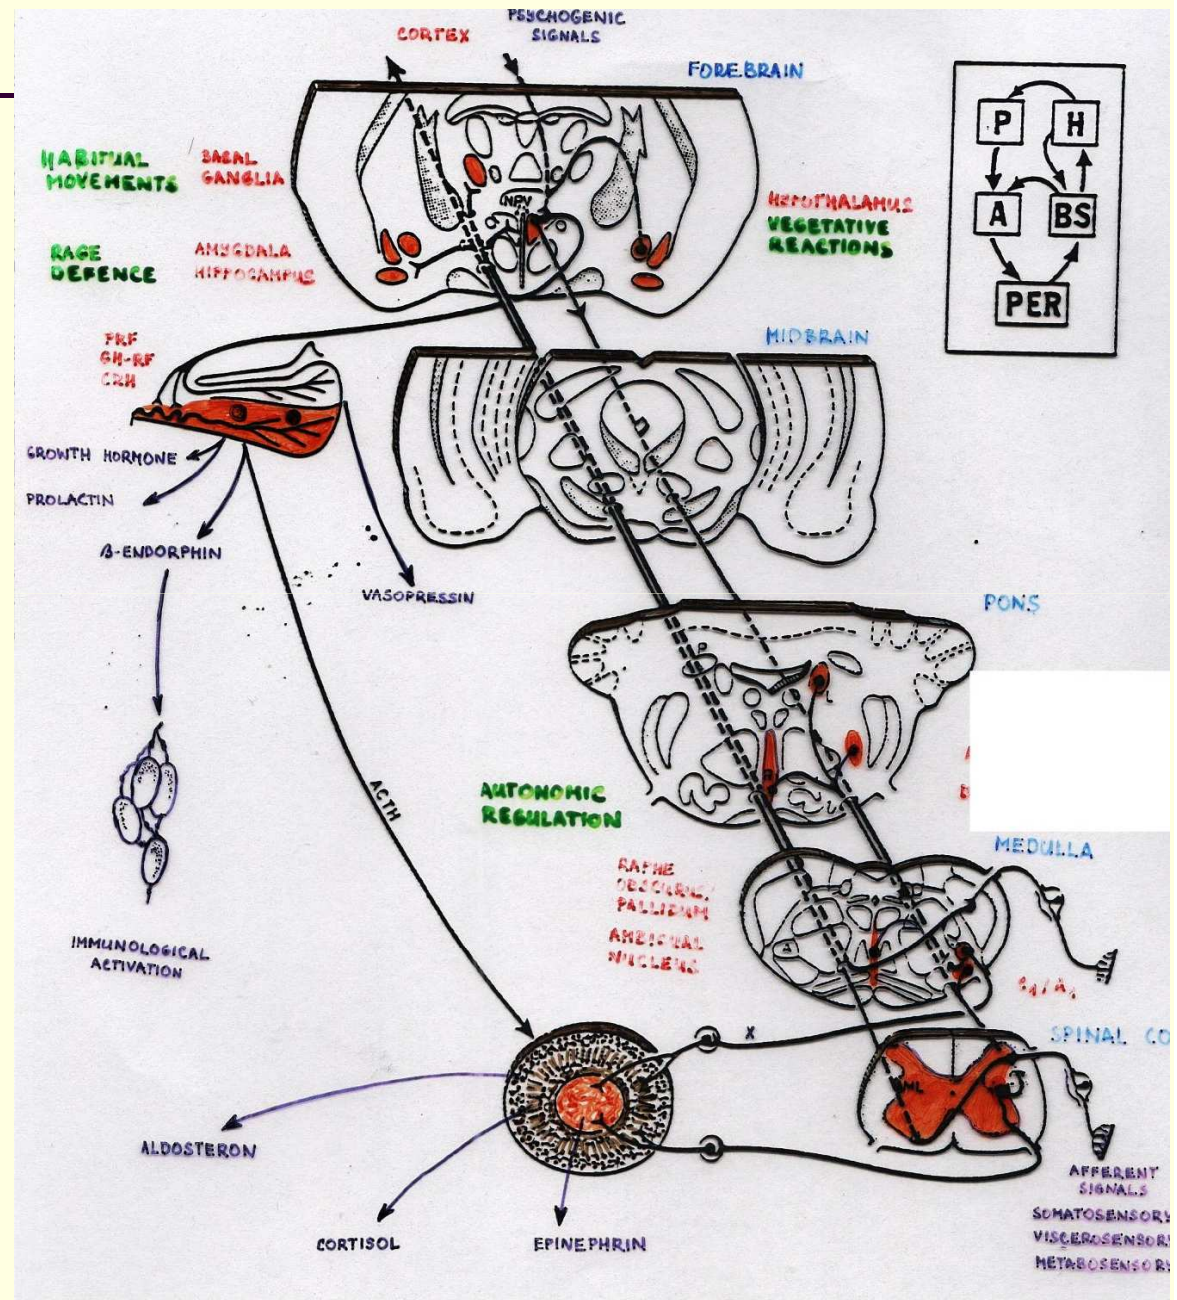 PSYCHOGENIC
SIGNALS
CORTEX
FOREBRAIN
P
H
A
BS
PER
HABITUAL
MOVEMENTS
BASAL
GANGLIA
NPV
HYPOTHALAMUS
VEGETATIVE
REACTIONS
RAGE
DEFENCE
AMYGDALA
HIPPOCAMPUS
MIDBRAIN
PRF
GH-RF
CRH
GROWTH HORMONE
PROLACTIN
β-ENDORPHIN
VASOPRESSIN
PONS
ACTH
AUTONOMIC
REGULATION
MEDULLA
RAPHE
OBSCURUS/
PALLIDUM
AMBIGUAL
NUCLEUS
IMMUNOLOGICAL
ACTIVATION
X
SPINAL CO
IML
ALDOSTERON
CORTISOL
EPINEPHRIN
AFFERENT
SIGNALS
SOMATOSENSORY
VISCEROSENSORY
METABOSENSORY